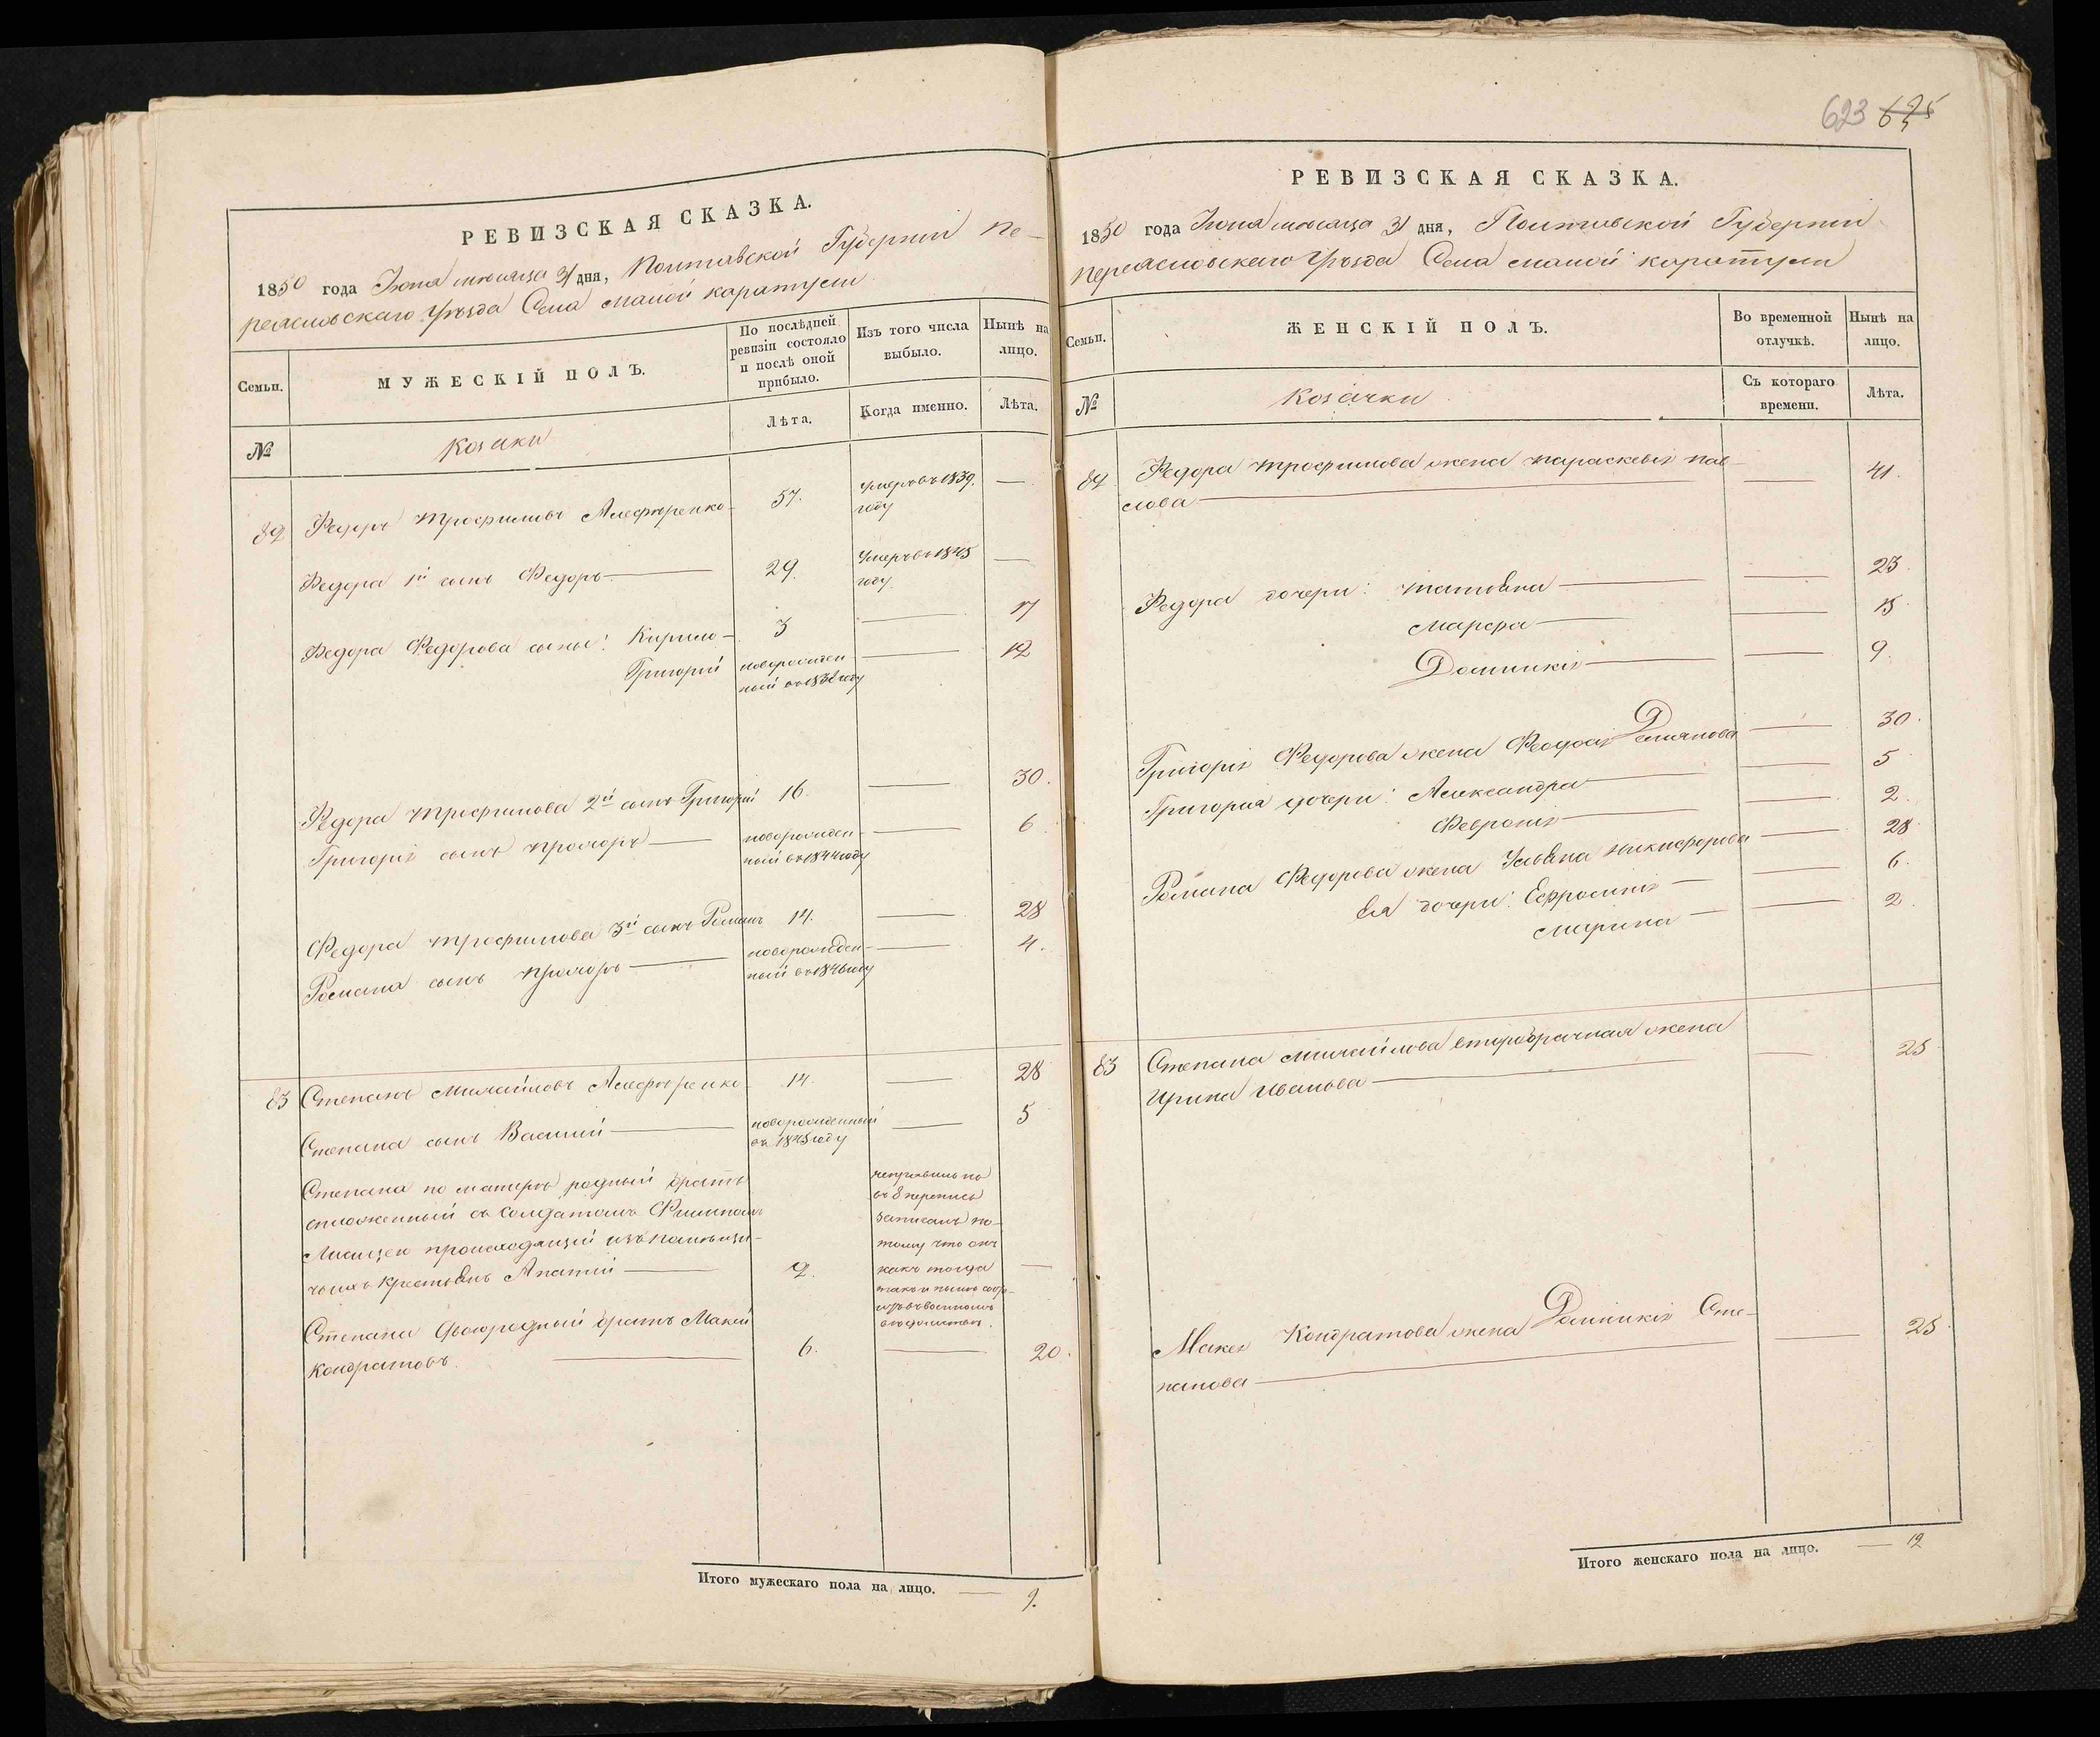 623 625
РЕВИЗСКАЯ СКАЗКА.
1850 года Іюня мѣсяца дня, Полтавской Губерніи Пе-
реяславскаго Уѣзда Села Малой Каратули
Семьи.
МУЖЕСКІЙ ПОЛЪ.
По послѣдней
ревизіи состояло
и послѣ оной
прибыло.
Изъ того числа
выбыло.
Нынѣ на
лицо.
№
Козаки
Лѣта.
Когда именно.
Лѣта.
82 Федоръ Трофимовъ 57. умеръ въ 1839. —
году
Федора 1й сынъ Федоръ — 29. Умеръ въ 1845 —
году.
Федора Федорова сыны: Кирило — 3 — 17
Григорій новорожден — 12
ный въ 1838 году
Федора Трофимова 2й сынъ Григорій 16. — 30.
Григорія сынъ Прохоръ — новорожден- — 6
ный въ 1844 году
Федора Трофимова 3й сынъ Романъ 14. — 28
Романа сынъ Прохоръ — новорожден- — 4.
ный въ 1846 году
83 Степанъ Михайловъ 14. — 28
Степана сынъ Василий — новорожденный — 5
въ 1845 году
Степана по матери родный братъ
съ Солдатомъ Филипомъ
происходящій изъ помѣщи-
чьихъ крестьянъ — 2. —
неправильно
въ 8 перепись
записанъ по-
тому что онъ
какъ тогда
такъ и нынѣ
въ военномъ
вѣдомствѣ.
Степана двоюродный братъ Мокей
Кондратовъ. — 6. — 20.
Итого мужескаго пола на лицо. — 9.
РЕВИЗСКАЯ СКАЗКА.
1850 года Іюня мѣсяца дня, Полтавской Губерніи
Переяславскаго Уѣзда Села Малой Каратули
Семьи.
ЖЕНСКІЙ ПОЛЪ.
Во временной
отлучкѣ.
Нынѣ на
лицо.
№
Козачки
Съ котораго
времени.
Лѣта.
82 Федора Трофимова жена Параскевія Пав- — 41.
лова —
Федора дочери: Татьяна — — 23.
Марфа — — 15
Домникія — — 9.
Григорія Федорова жена Демянова — 30.
Григорія дочери: Александра — — 5
Февронія — — 2.
Романа Федорова жена Ульяна Никифорова — 28
Ея дочери: Ефросинія — — 6.
Марина — — 2.
83 Степана Михайлова второбрачная жена — 25
Ирина Иванова —
Мокея Кондратова жена Домникія Сте- — 25.
панова —
Итого женскаго пола на лицо. — 12